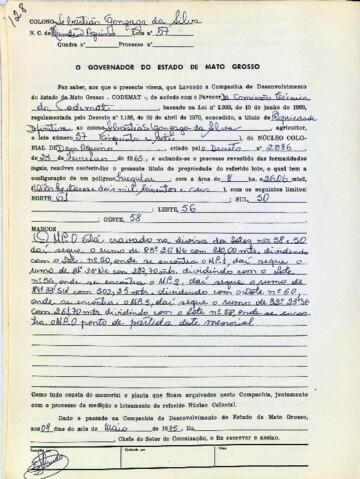 128
COLONO Sebastião Gonzaga da Silva
N. C. de Dom Aquino Lote nº 57
Quadra nº Processo nº
O GOVERNADOR DO ESTADO DE MATO GROSSO
Faz saber, aos que o presente virem, que havendo a Companhia de Desenvolvimento
do Estado de Mato Grosso - CODEMAT -, de acordo com o Parecer da Comissão Técnica
da Codemat, bassado na Lei nº 2.933, de 10 de junho de 1969,
regulamentada pelo Decreto nº 1.138, de 29 de abril de 1970, concedido, a título de Propriedade
Definitiva ao colono Sebastião Gonzaga da Silva, agricultor,
o lote número 57 (cinquenta e sete) do NÚCLEO COLO-
NIAL DE Dom Aquino, criado pelo Decreto nº 2086
de 25 de Fevereiro de 1965, e achando-se o processo revestido das formalidades
legais, resolveu conferir-lhe o presente título de propriedade do referido lote, o qual tem a
configuração de um polígono Irregular com a área de 8 ha. 2606 mts2.
NORTE, 61; SUL, 50
LESTE, 56
OESTE, 58
MARCOS
O M.P.O está cravado na divisa dos lotes nºs 58 e 50
daí segue o rumo de 85º 26 NE com 210,00 mts. dividindo
com o lote nº 50, onde se encontra o M.P.1, daí segue o
nº 56, onde se encontra o M.P.2, daí segue o rumo de
onde se encontra o M.P.3, daí segue o rumo de
dividindo com o lote nº 58, onde se encon-
tra o M.P.O ponto de partida deste memorial
Como tudo consta do memorial e planta que ficam arquivados nesta Companhia, juntamente
com o processo de medição e loteamento do referido Núcleo Colonial.
Dado e passado na Companhia de Desenvolvimento do Estado de Mato Grosso,
aos 09 dias do mês de Maio de 1975. Eu,
Chefe do Setor de Colonização, o fiz escrever e assino.
Conferido por
Visto